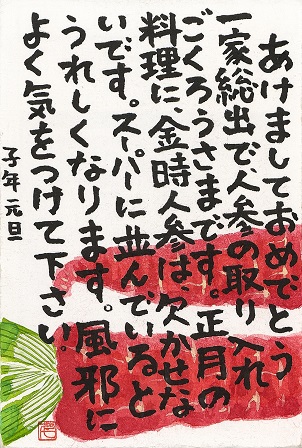 あけましておめでとう
一家総出で人参の取り入れ
ごくろうさまです。正月の
料理に、金時人参は、欠かせな
いです。スーパーに並んでいると
うれしくなります。風邪に
よく気をつけて下さい。
子年元旦